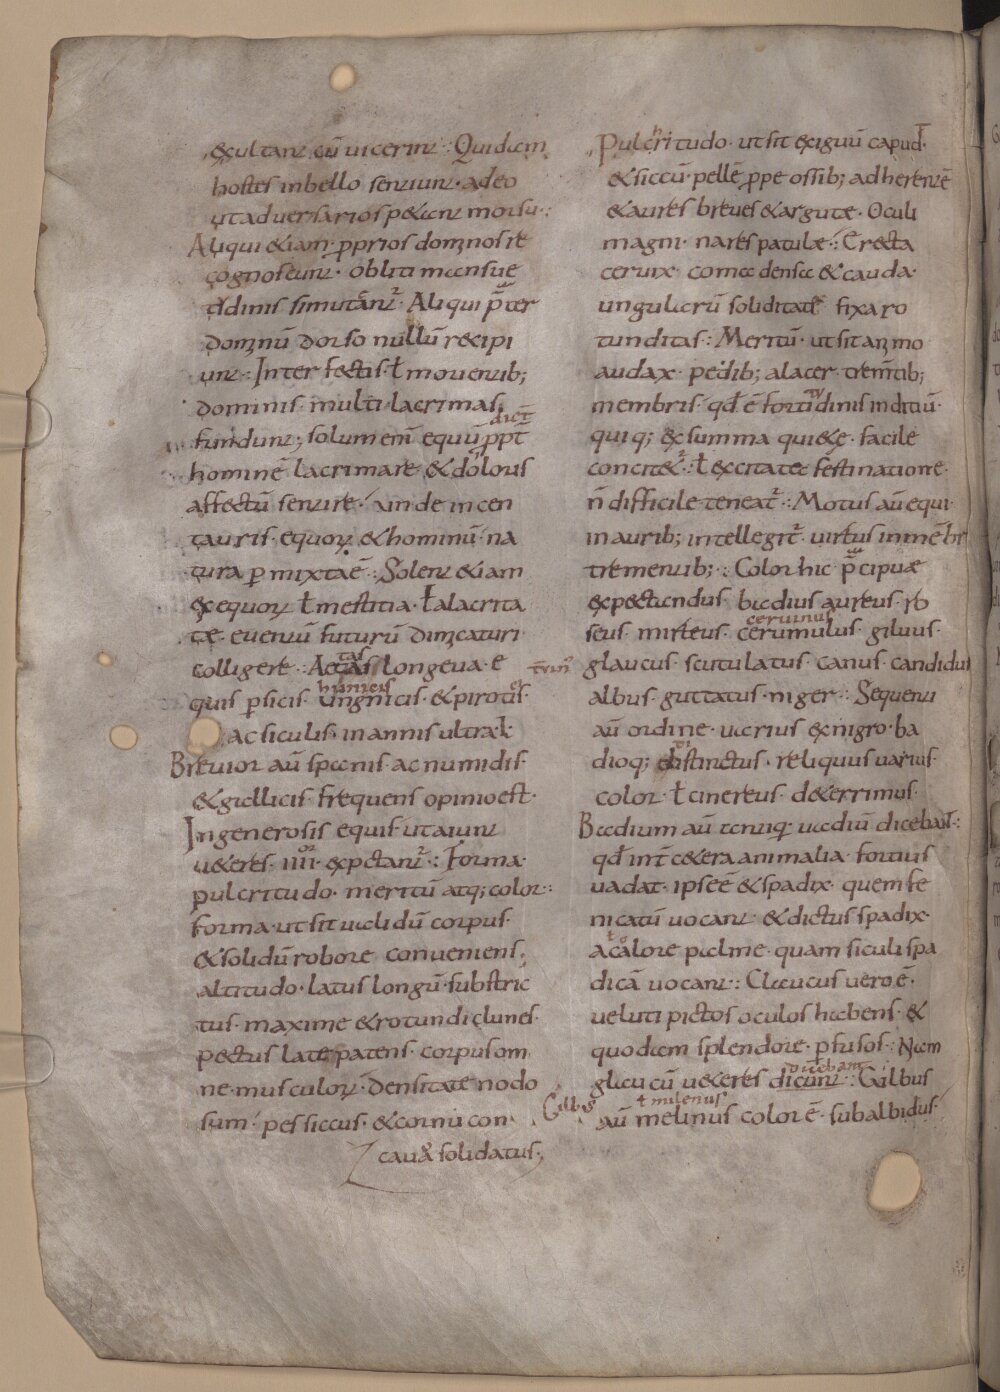 exultant cũ vicerint·: Quidam
hostes in bello sentiunt· adeo
ut adversarios petant morsu·:
Aliqui etiam· pprios dominos re
cognoscunt· obliti mansue
tidinis si mutant᷑· Aliqui p̃ter
dominũ dorso nullũ recipi
unt·: Inter fectis· ł morientib;
dominis· multi· lacrimas
fundunt; solum eni equũ ppt̃
dict̃
hominẽ lacrimare & doloris
affectũ sentire· unde in cen
tauris· equoꝝ & hominũ· na
tura pmixtaẽ·: Solent etiam
ex equoꝝ ł mestitia· ł alacrita
te· eventũ futurũ dimicaturi
colligere·: Aetas longeva· e
tas
quis psicis· ungnicis· & pirotis·
hunieis
ac siculis· in annis ultra· l·
Brevior aũ spanis· ac numidis·
& gallicis· frequens opinio est·
In generosis equis· ut aiunt
veteres· IIII· expctant᷑·: Forma·
or
pulcritudo· meritũ atq; color·:
forma· ut sit validũ corpus·
& solidũ robore conveniens·
altitudo· latus longũ· substric
tus· maxime & rotundi clunes·
pectus late patens· corpus om
ne· musculoꝝ· densitate nodo
sum· pes siccus· & cornu con
cavo solidatus;
Pulcritudo· ut sit exiguũ capud·
& siccũ· pellẽ ppe ossib; adherentẽ
& aures breves & argutę· Oculi
magni· nares patulę·: Erecta
cervix· coma densa & cauda·
ungularũ soliditate· fixa ro
tunditas·: Meritũ· ut sit animo
audax· pedib; alacer· trem̃tib;
membris· qđ ẽ fortidinis inditiũ·
tu
quiq; ex summa quiete· facile
concitet᷑·: ł excitata festinatione·
ñ difficile teneat᷑·: Motus aũ equi·
in aurib; intellegit᷑· virtus in mẽbr
trementib;·: Color hic p̃cipuę
expectandus· badius· aureus· ro
seus· mirteus· cerumulus· gilvus·
cervinus
glaucus· scutulatus· canus· candidus
albus· guttatus· niger·: Sequenti
aũ ordine· varius ex nigro· ba
dioq; distinctus· reliquus varius·
color· ł cinereus· deterrimus·
Badium aũ antiq· vadiũ dicebant·:
qđ int̃ cetera animalia· fortius
vadat· ipse ẽ & spadix· quem fe
nicatũ vocant· & dictus spadix·
a calore palme· quam siculi spa
dicã vocant·: Glaucus vero ẽ·
veluti pictos oculos habens· &
quodam splendore· pfusos·: Nam
glaucũ veteres dicunt·: Gilbus
dicebam
Gilbus
ł milenus
aũ melinus color ẽ· subalbidus·